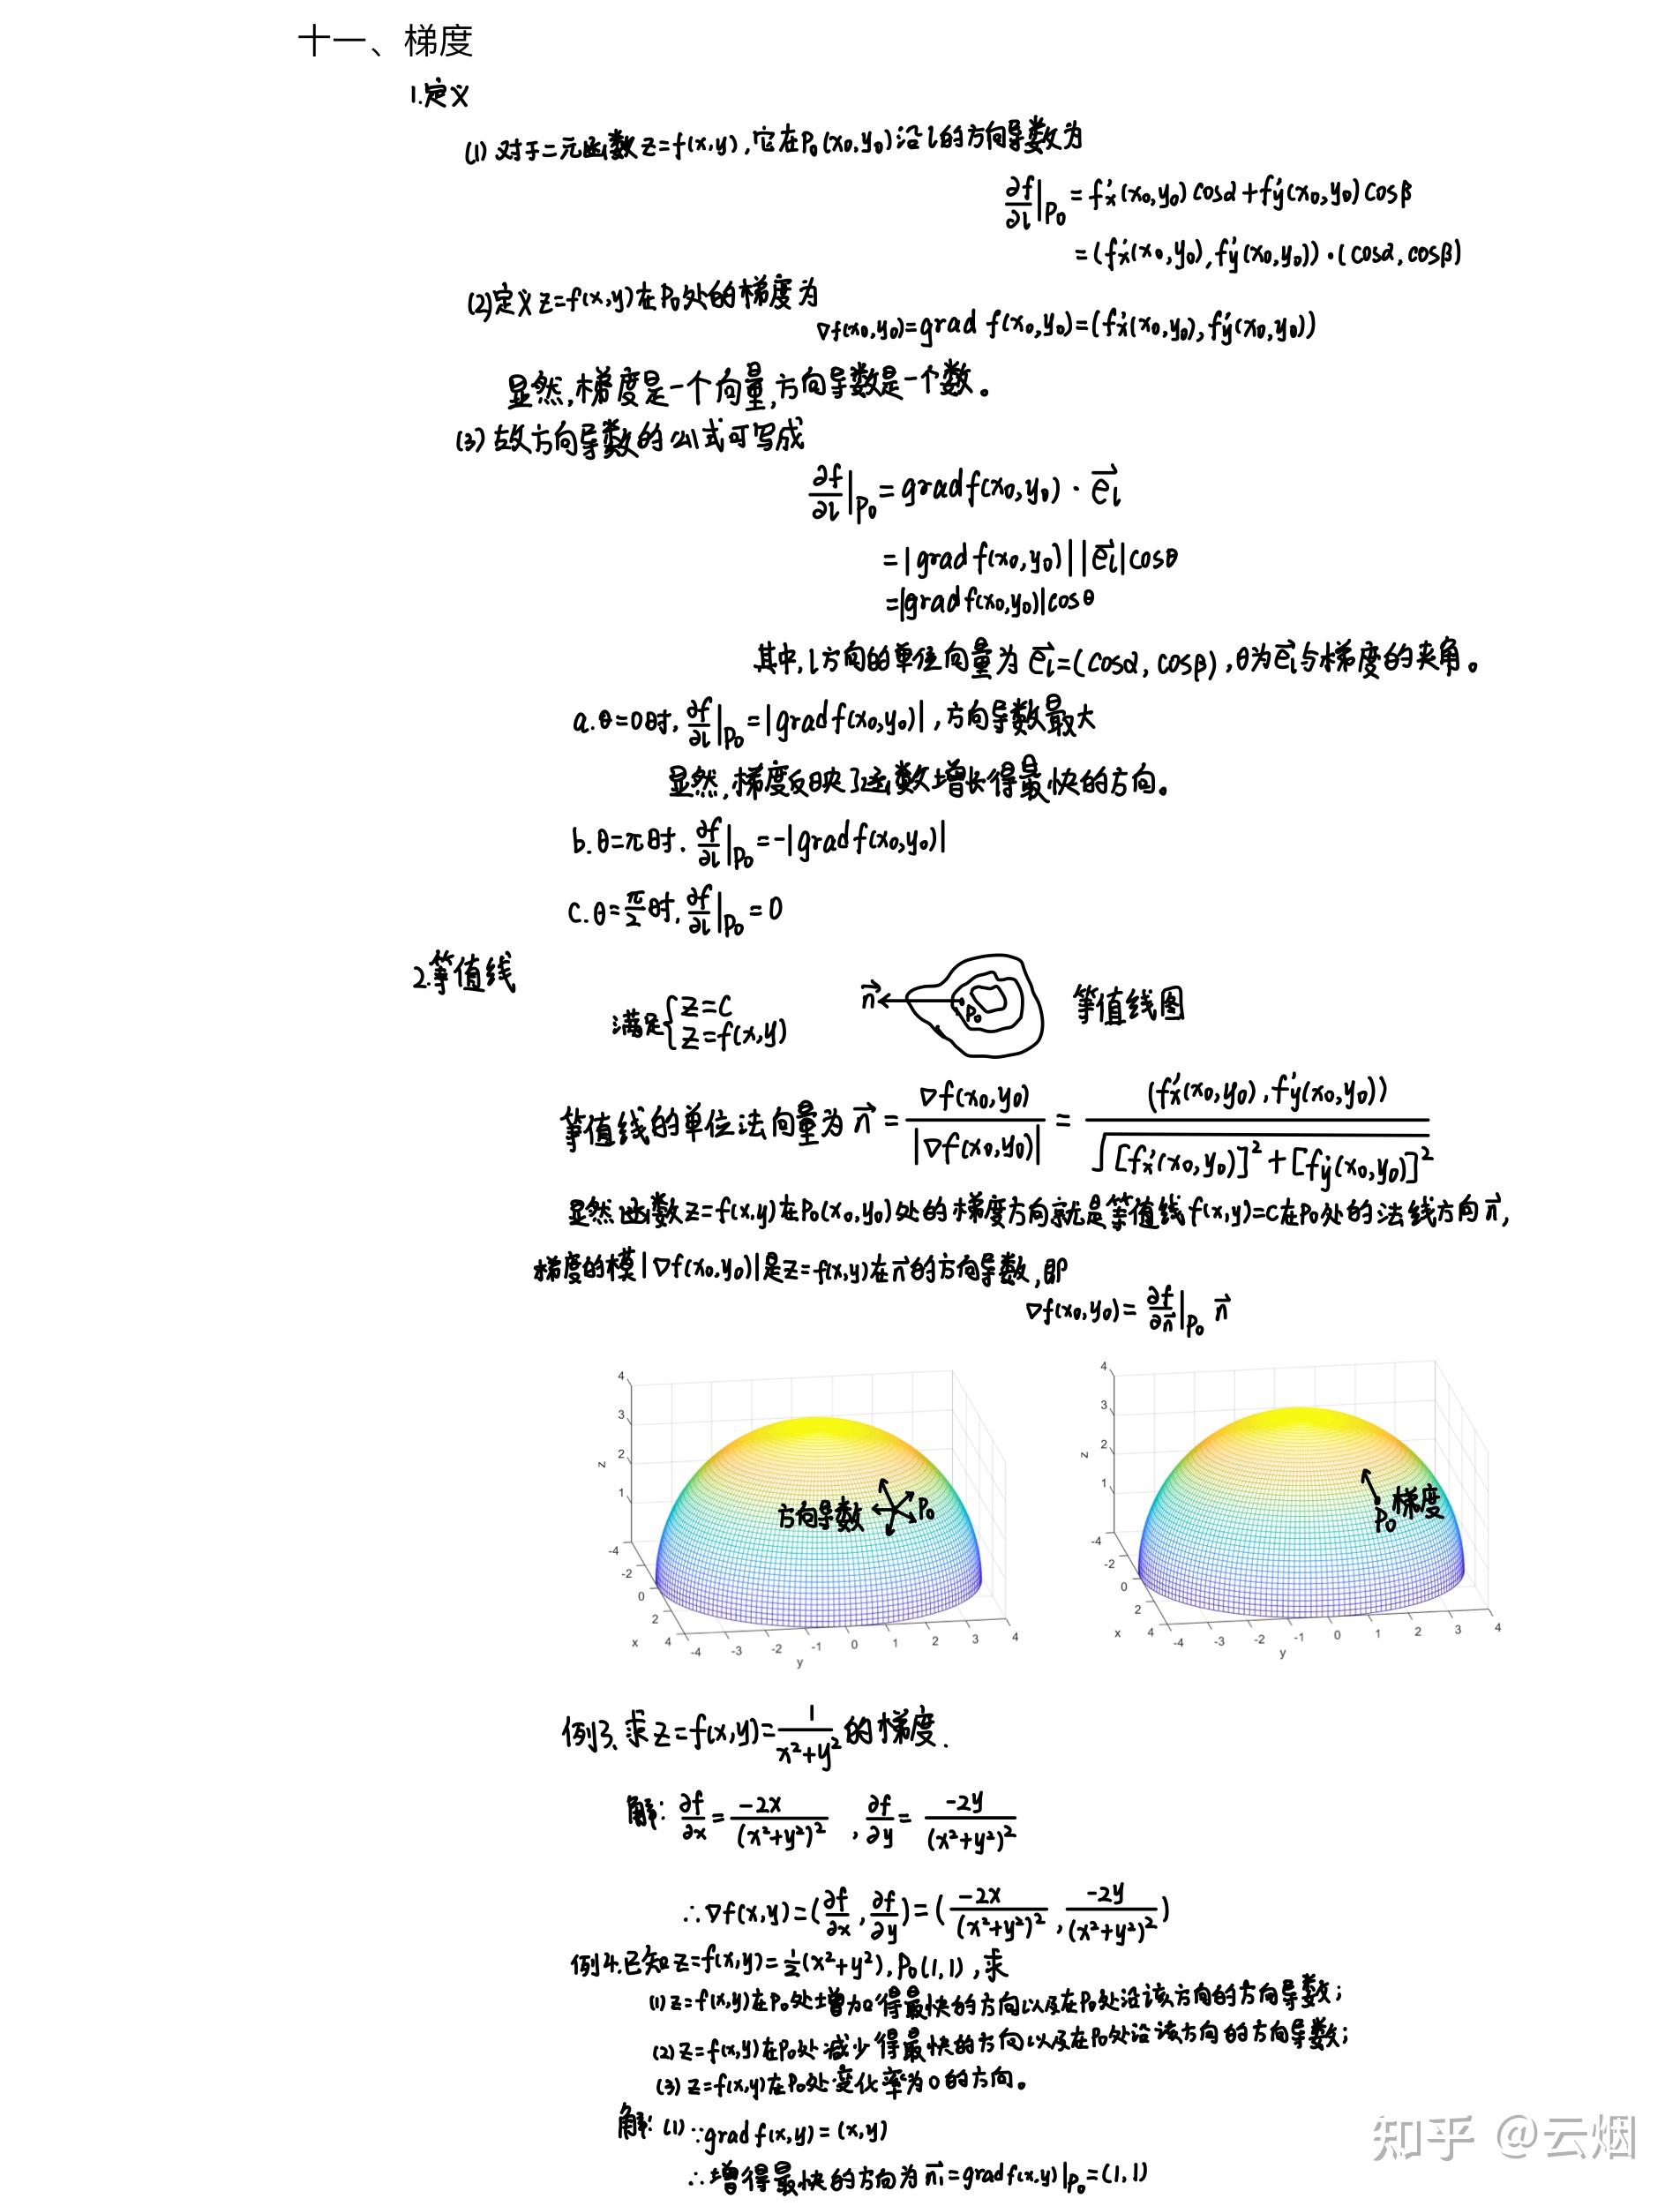 十一、梯度
1.定义
(1) 对于二元函数z=f(x,y),它在P₀(x₀,y₀)沿l的方向导数为
∂f/∂l|P₀ = f'x(x₀,y₀)cosα+f'y(x₀,y₀)cosβ
=(f'x(x₀,y₀),f'y(x₀,y₀))·(cosα,cosβ)
(2)定义z=f(x,y)在P₀处的梯度为
∇f(x₀,y₀)=grad f(x₀,y₀)=(f'x(x₀,y₀),f'y(x₀,y₀))
显然,梯度是一个向量,方向导数是一个数。
(3) 故方向导数的公式可写成
∂f/∂l|P₀ = gradf(x₀,y₀)·e⃗l
=|gradf(x₀,y₀)||e⃗l|cosθ
=|gradf(x₀,y₀)|cosθ
其中,l方向的单位向量为e⃗l=(cosα,cosβ),θ为e⃗l与梯度的夹角。
a.θ=0时,∂f/∂l|P₀=|gradf(x₀,y₀)|,方向导数最大
显然,梯度反映了函数增长得最快的方向。
b.θ=π时,∂f/∂l|P₀=-|gradf(x₀,y₀)|
c.θ=π/2时,∂f/∂l|P₀=0
2.等值线
满足{z=c
z=f(x,y)
n⃗ P₀ 等值线图
等值线的单位法向量为n⃗=∇f(x₀,y₀)/|∇f(x₀,y₀)|=(f'x(x₀,y₀),f'y(x₀,y₀))/√([f'x(x₀,y₀)]²+[f'y(x₀,y₀)]²)
显然函数z=f(x,y)在P₀(x₀,y₀)处的梯度方向就是等值线f(x,y)=c在P₀处的法线方向n⃗,
梯度的模|∇f(x₀,y₀)|是z=f(x,y)在n⃗的方向导数,即
∇f(x₀,y₀)=∂f/∂n⃗|P₀ n⃗
4
3
2
1
z
-4
-2
0
2
4
x
-4 -3 -2 -1 0 1 2 3 4
y
方向导数 P₀
4
3
2
1
z
-4
-2
0
2
4
x
-4 -3 -2 -1 0 1 2 3 4
y
P₀ 梯度
例3.求z=f(x,y)=1/(x²+y²)的梯度.
解:∂f/∂x=-2x/(x²+y²)²,∂f/∂y=-2y/(x²+y²)²
∴∇f(x,y)=(∂f/∂x,∂f/∂y)=(-2x/(x²+y²)²,-2y/(x²+y²)²)
例4.已知z=f(x,y)=½(x²+y²),P₀(1,1),求
(1)z=f(x,y)在P₀处增加得最快的方向以及在P₀处沿该方向的方向导数;
(2)z=f(x,y)在P₀处减少得最快的方向以及在P₀处沿该方向的方向导数;
(3)z=f(x,y)在P₀处变化率为0的方向。
解:(1)∵gradf(x,y)=(x,y)
∴增得最快的方向为n⃗₁=gradf(x,y)|P₀=(1,1)
知乎 @云烟